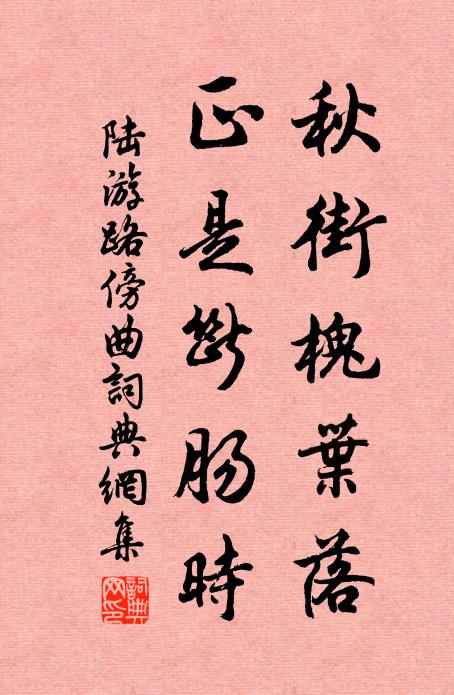 秋街槐葉落
正是斷腸時
陸游路傍曲詞典網集
詞典網印